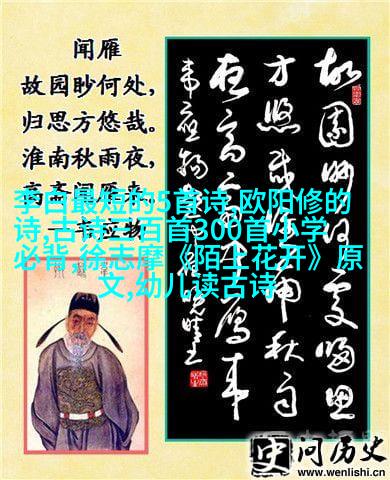 闻雁
故园眇何处,
归思方悠哉。
淮南秋雨夜,
高斋闻雁来。
李白最短的5首诗,欧阳修的
诗,古诗三百首300首小学
必背,徐志摩《陌上花开》原
文,幼儿读古诗
故園眇何處歸思
方悠哉淮南秋雨
夜高齋聞雁來
韋應物
史问历史
www.wenlishi.cn